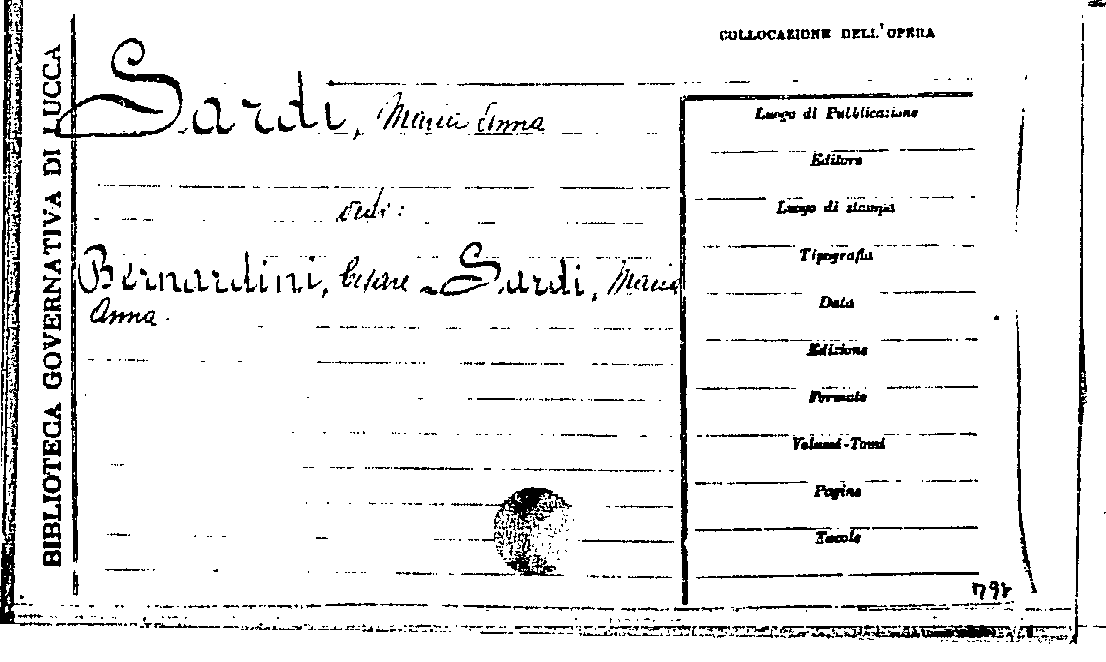 BIBLIOTECA GOVERNATIVA DI LUCCA
COLLOCAZIONE DELL'OPERA
Sardi, Maria Anna
vedi:
Bernardini, Cesare - Sardi, Maria
Anna.
Luogo di Pubblicazione
Editore
Luogo di stampa
Tipografia
Data
Edizione
Formato
Volumi-Tomi
Pagine
Tavole